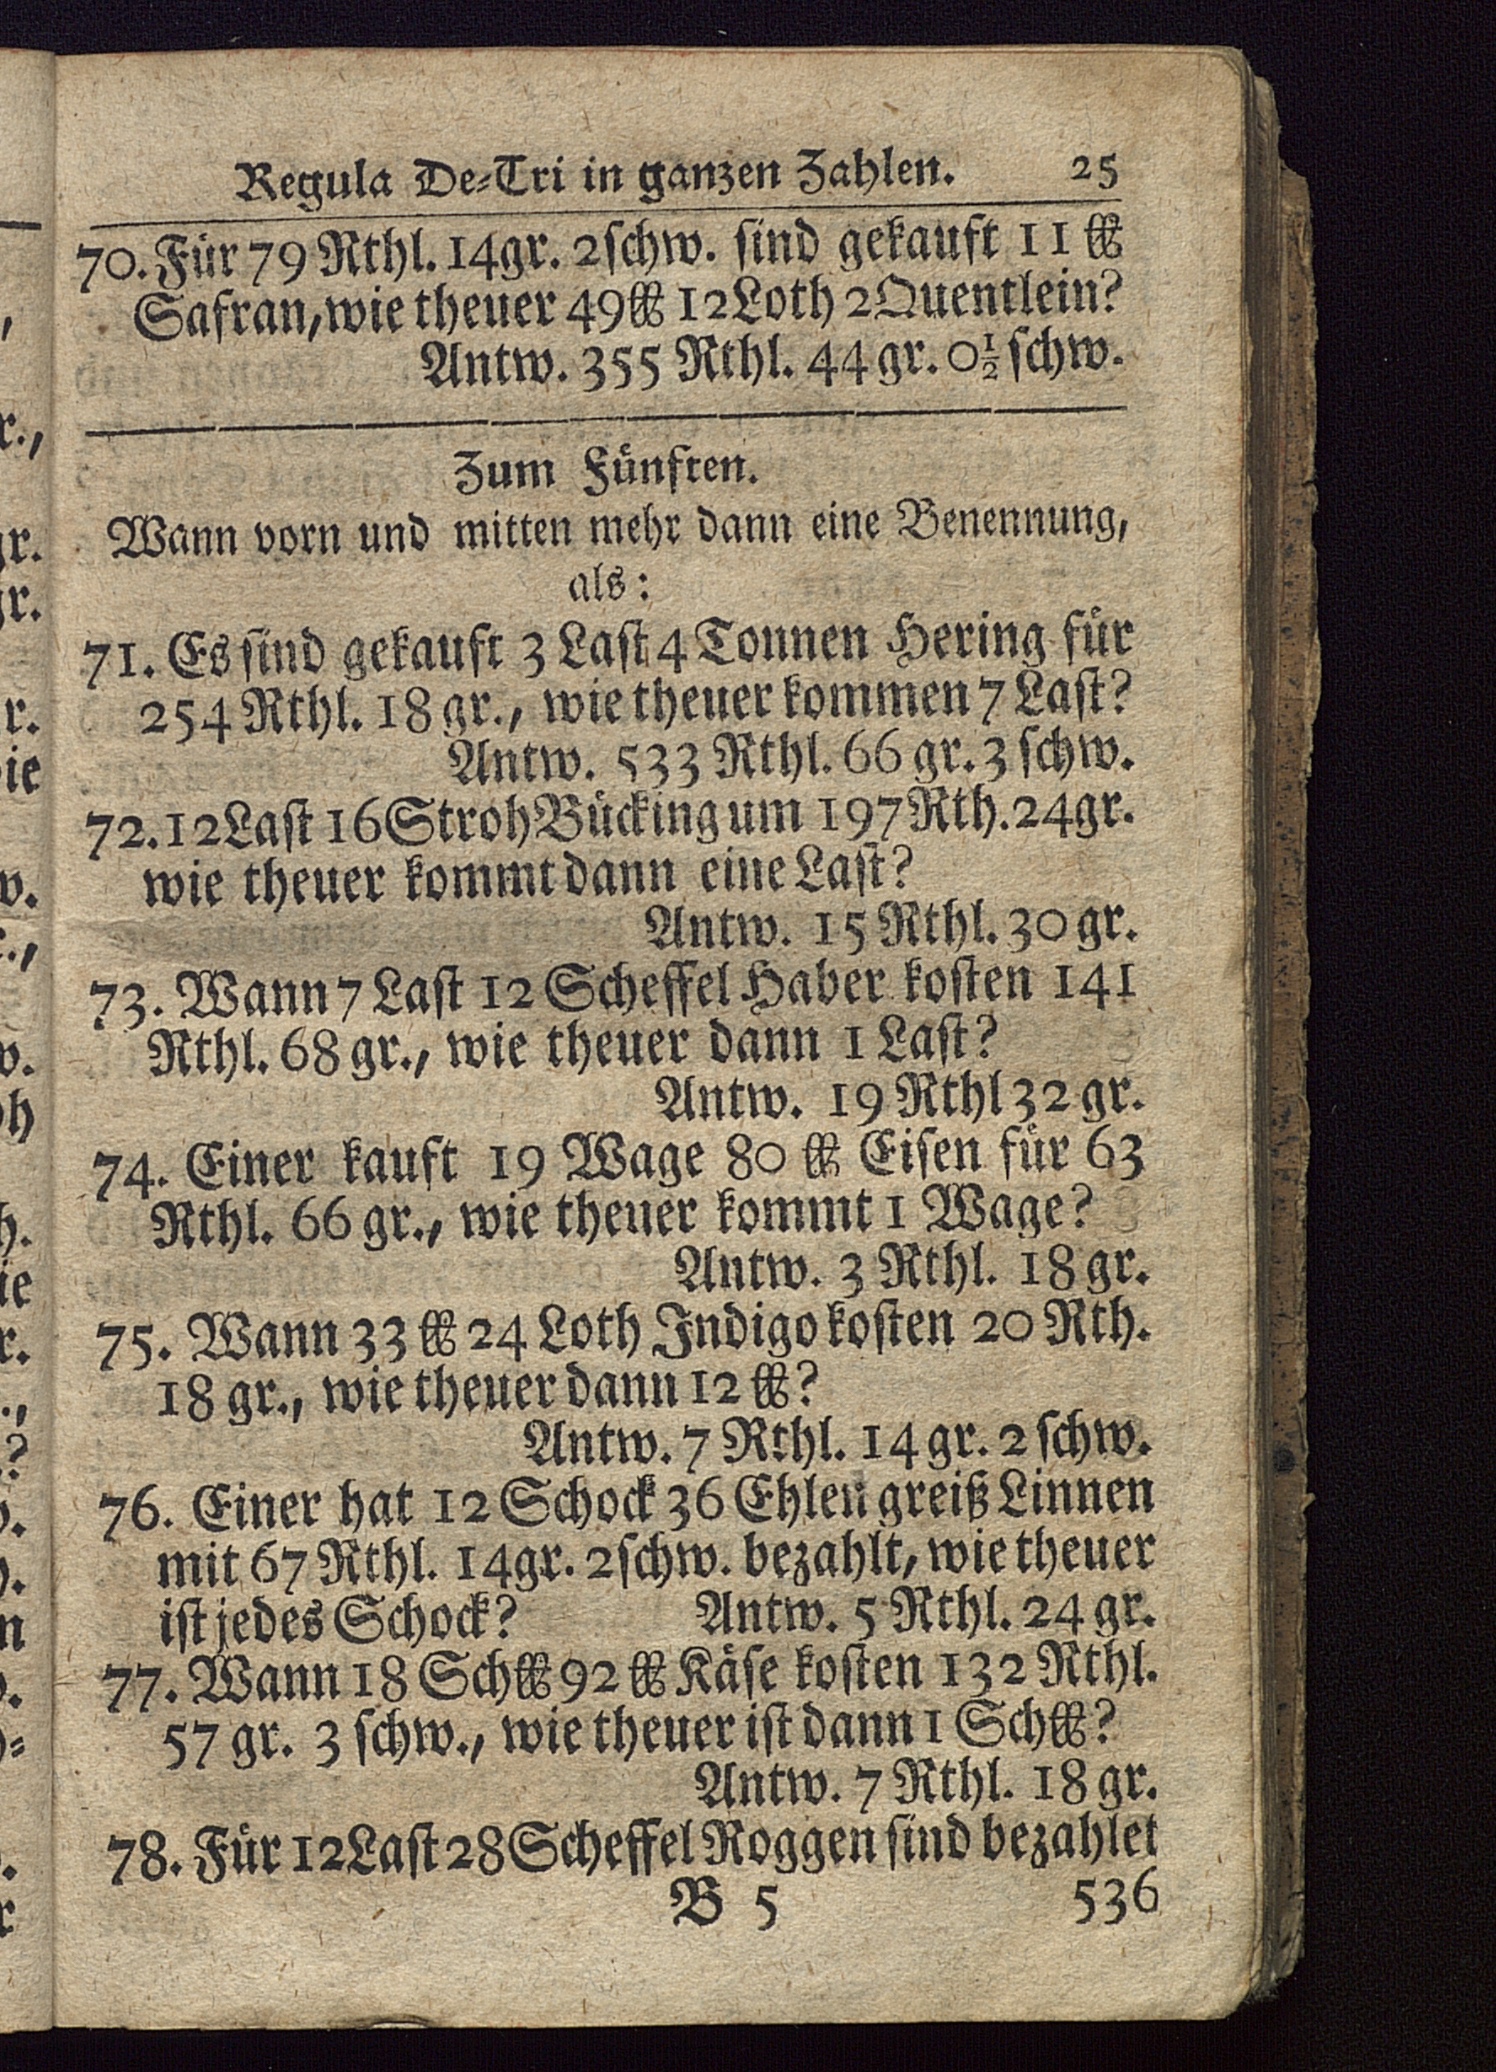 Regula De-Tri in ganzen Zahlen. 25
70. Für 79 Rthl. 14gr. 2schw. sind gekauft 11 ℔
Safran, wie theuer 49℔ 12Loth 2Quentlein?
Antw. 355 Rthl. 44 gr. 0½ schw.
Zum Fünften.
Wann vorn und mitten mehr dann eine Benennung,
als:
71. Es sind gekauft 3 Last 4 Tonnen Hering für
254 Rthl. 18 gr., wie theuer kommen 7 Last?
Antw. 533 Rthl. 66 gr. 3 schw.
72. 12Last 16Stroh Bücking um 197Rth. 24gr.
wie theuer kommt dann eine Last?
Antw. 15 Rthl. 30 gr.
73. Wann 7 Last 12 Scheffel Haber kosten 141
Rthl. 68 gr., wie theuer dann 1 Last?
Antw. 19 Rthl 32 gr.
74. Einer kauft 19 Wage 80 ℔ Eisen für 63
Rthl. 66 gr., wie theuer kommt 1 Wage?
Antw. 3 Rthl. 18 gr.
75. Wann 33 ℔ 24 Loth Indigo kosten 20 Rth.
18 gr., wie theuer dann 12 ℔?
Antw. 7 Rthl. 14 gr. 2 schw.
76. Einer hat 12 Schock 36 Ehlen greiß Linnen
mit 67 Rthl. 14gr. 2schw. bezahlt, wie theuer
ist jedes Schock? Antw. 5 Rthl. 24 gr.
77. Wann 18 Sch℔ 92 ℔ Käse kosten 132 Rthl.
57 gr. 3 schw., wie theuer ist dann 1 Sch℔?
Antw. 7 Rthl. 18 gr.
78. Für 12Last 28Scheffel Roggen sind bezahlet
B 5 536